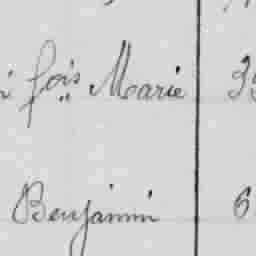 fois Marie 3
Benjamin 6